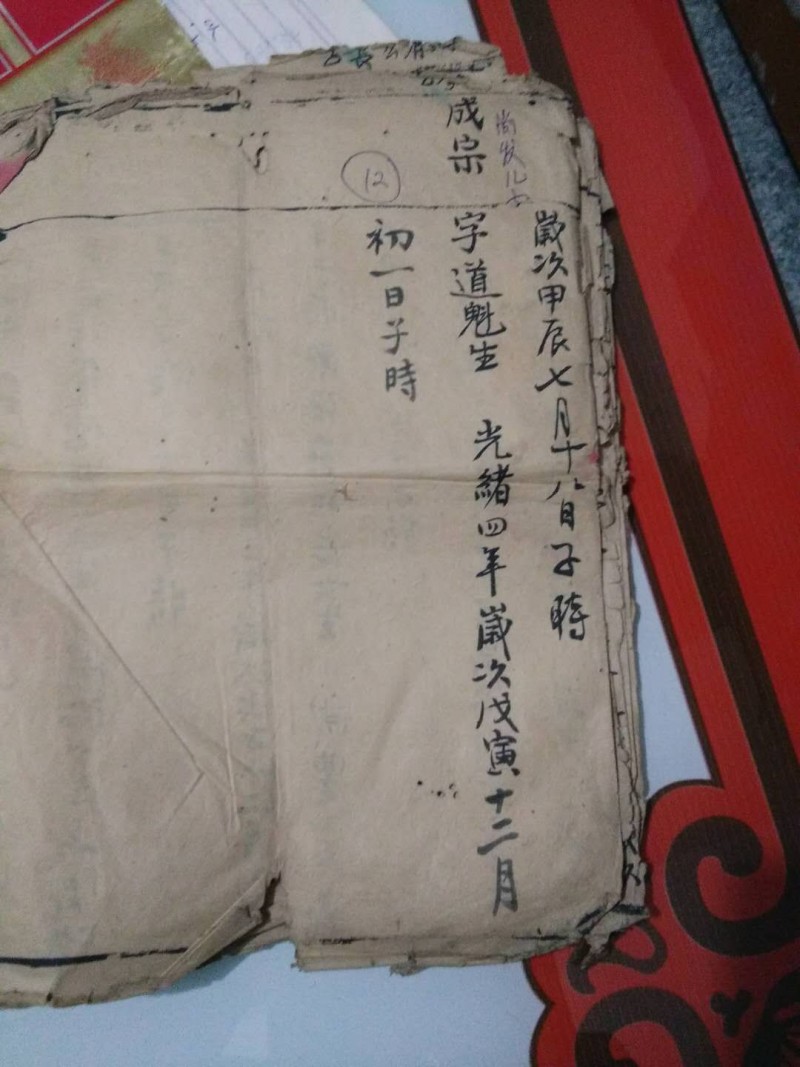 歲次甲辰七月十八日子時
成宗 字道魁生 光緒四年歲次戊寅十二月
初一日子時
12